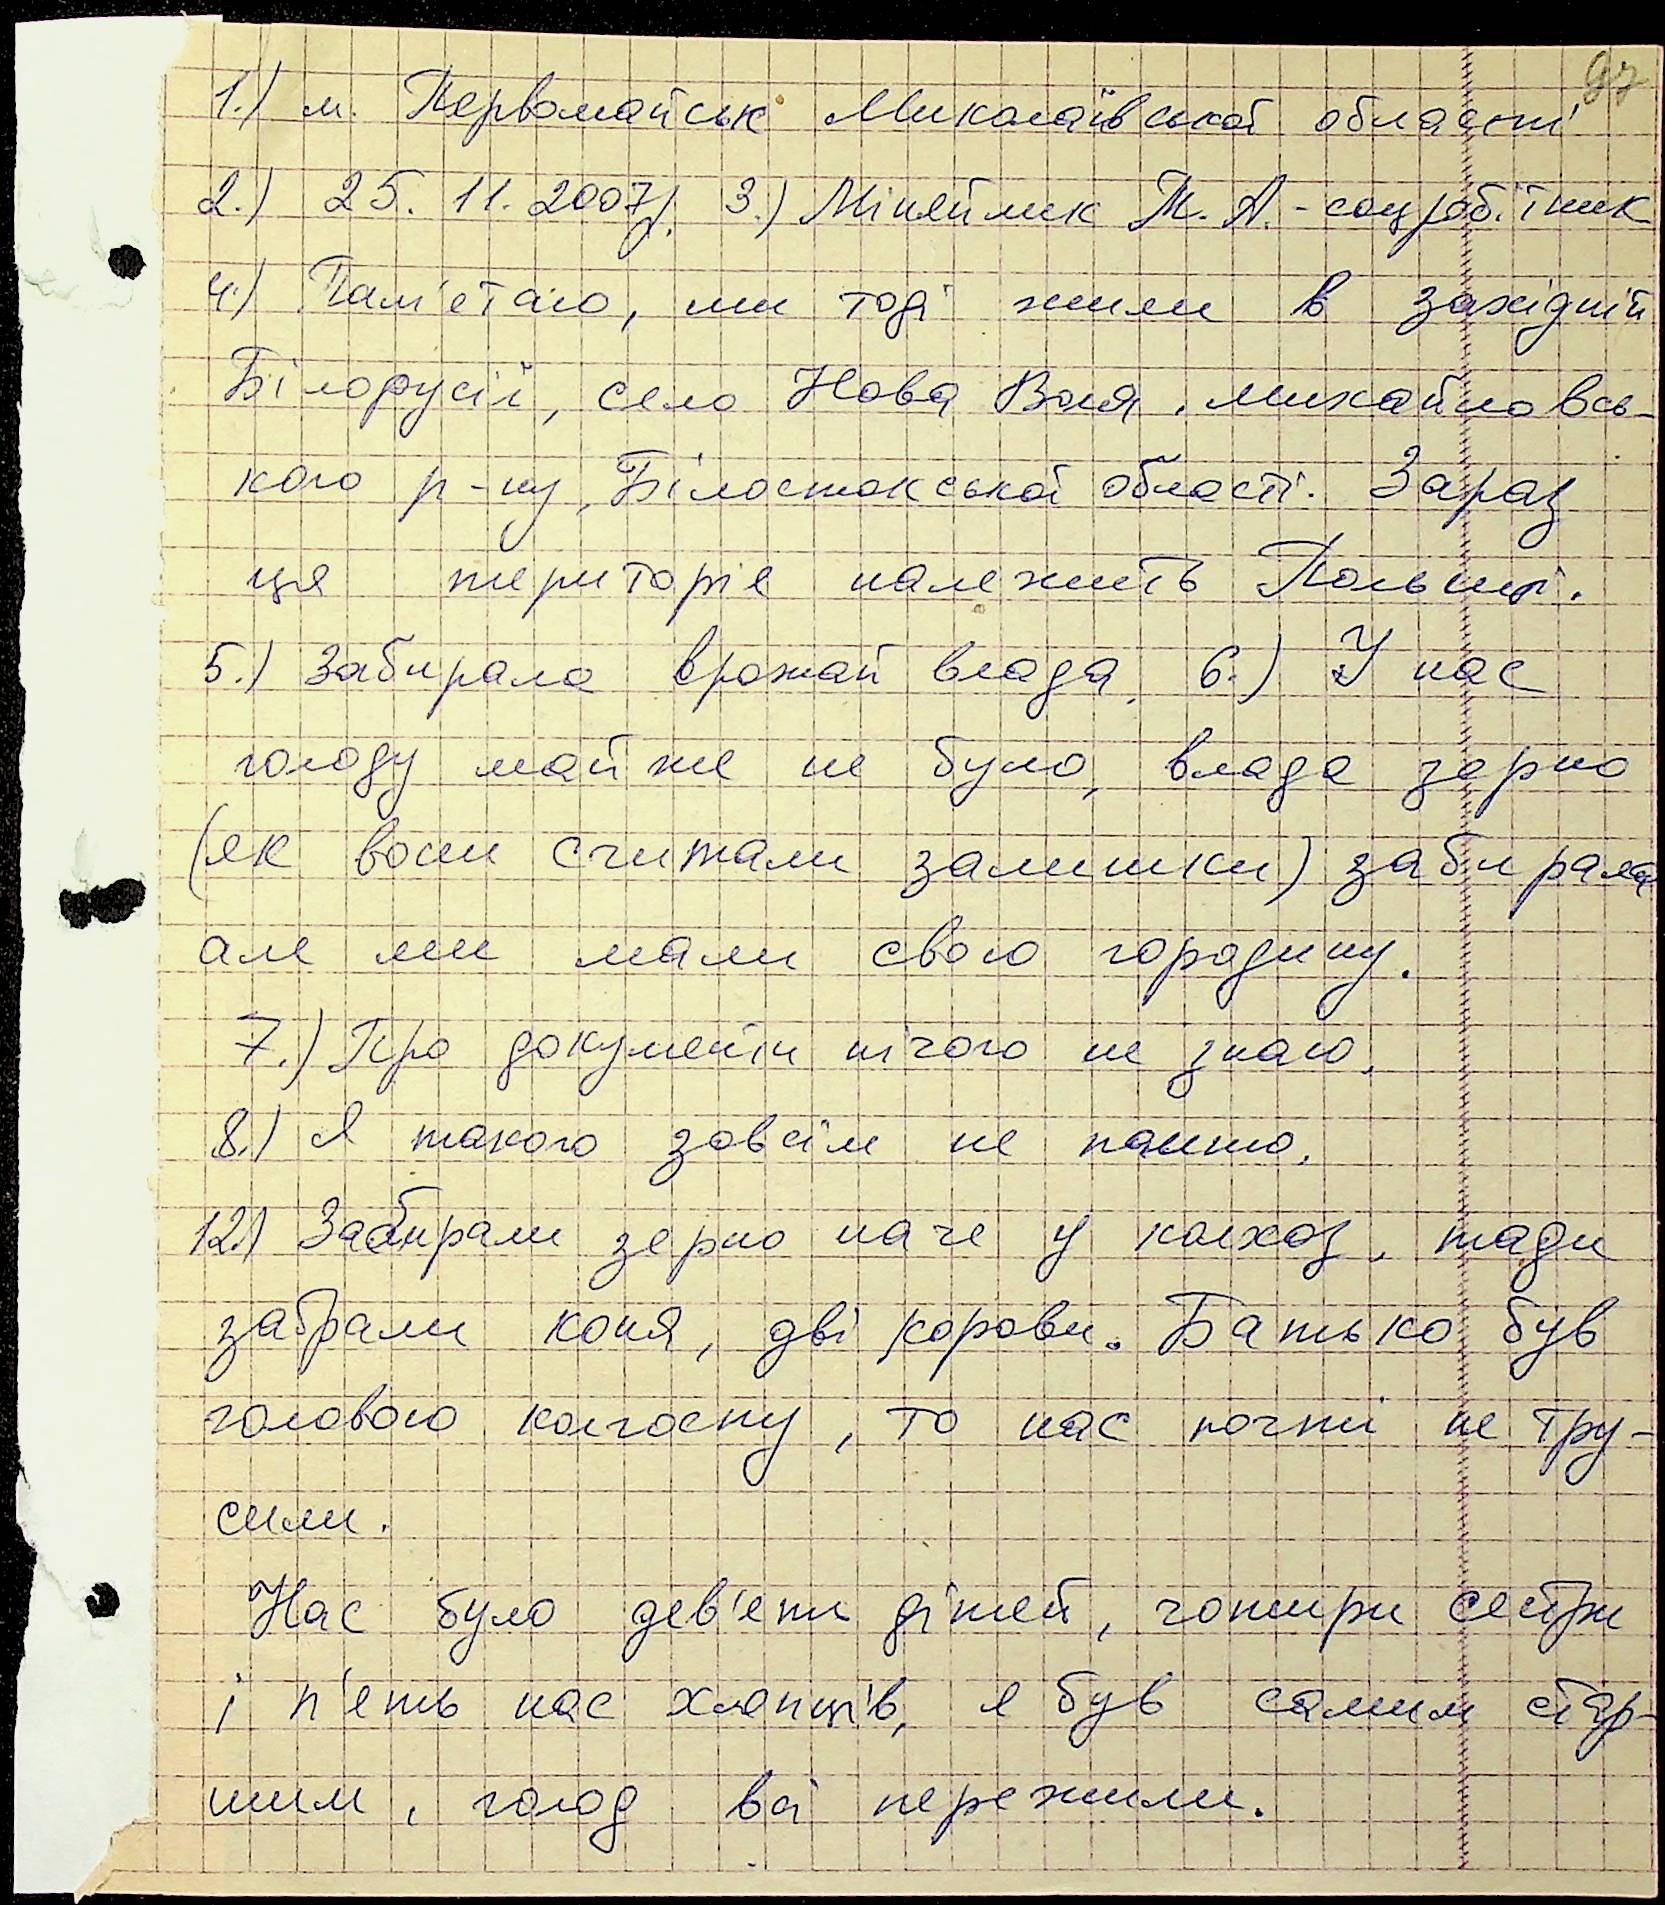 97
1.) м. Первомайськ Миколаївської області
2.) 25. 11. 2007р. 3.) Міняйлик Т. А. - соцробітник
4.) Пам'ятаю, ми тоді жили в західній
Білорусії, село Нова Воля, Михайловсь-
кого р-ну, Білостокської області. Зараз
ця територія належить Польші.
5.) Забирала врожай влада. 6.) У нас
голоду майже не було, влада зерно
(як вони считали залишки) забирала
але ми мали свою городину.
7.) Про документи нічого не знаю.
8.) Я такого зовсім не помню.
12.) Забирали зерно наче у колхоз, тади
забрали коня, дві корови. Батько був
головою колгоспу, то нас почті не тру-
сили.
Нас було дев'ять дітей, чотири сестри
і п'ять нас хлопців, я був самим стар-
шим, голод всі пережили.